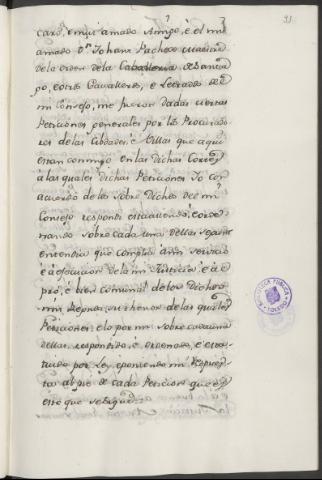 31
caro, e mui amado Amigo, e el mui
amado Dn Johan Pacheco
de la orden de la Cavalleria de Santia
go, e otros Cavalleros, e Letrados de
mi Consejo, me fueron dadas ciertas
Peticiones generales por los Procurado
res de las Cibdades, e Villas que aqui
estan conmigo en las dichas Cortes
a las quales dichas Peticiones Yo con
acuerdo de los sobre dichos de el mi
Consejo respondi estatuyendo, e orde
nando sobre cada una dellas segunt
entendia que cumplia a mi servicio
e a efecucion de la mi Justicia, e a el
pró, e bien comunal de los Dichos
mis Reynos, su thenor de las quales
Peticiones, e lo por mi sobre cada una
dellas respondido, e ordenado, e esta
tuido por Ley e poniendo mi Respues
ta al pie de cada Peticion que es
esto que se sigue.
BIBLIOTECA PUBLICA
TOLEDO